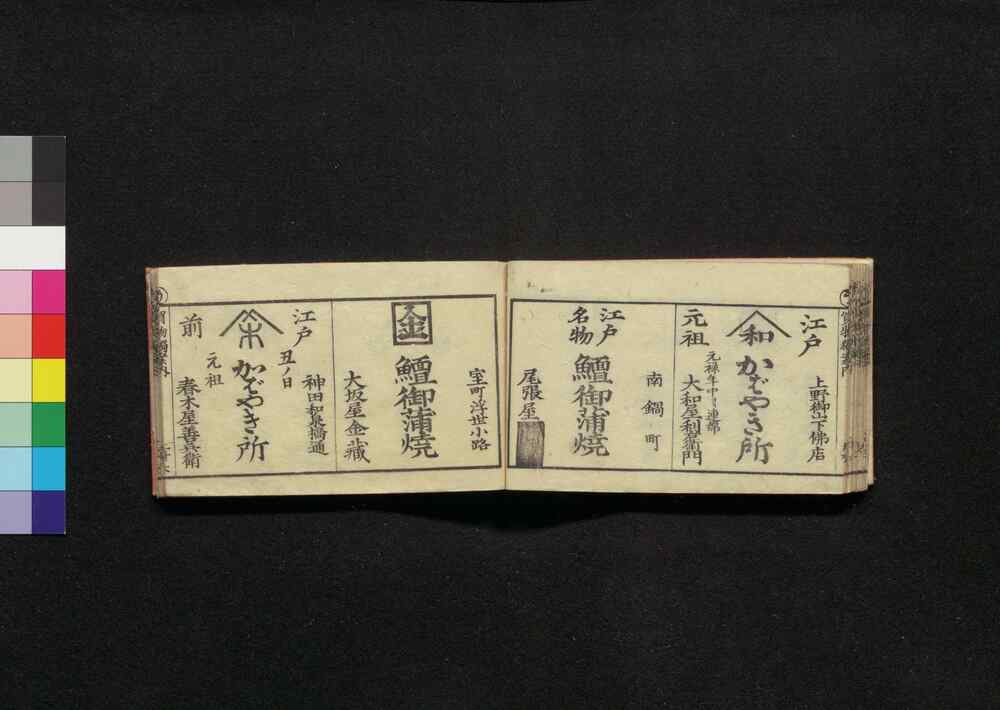 上野御山下佛店
江戸
和
かばやき所
元祖
元禄年中ヨリ連綿
大和屋利衛門
南鍋町
江戸
名物
鱣御蒲焼
尾張屋
室町浮世小路
金
鱣御蒲焼
大坂屋金蔵
江戸
丑ノ日
神田和泉橋通
かばやき所
元祖
前
春木屋善兵衛